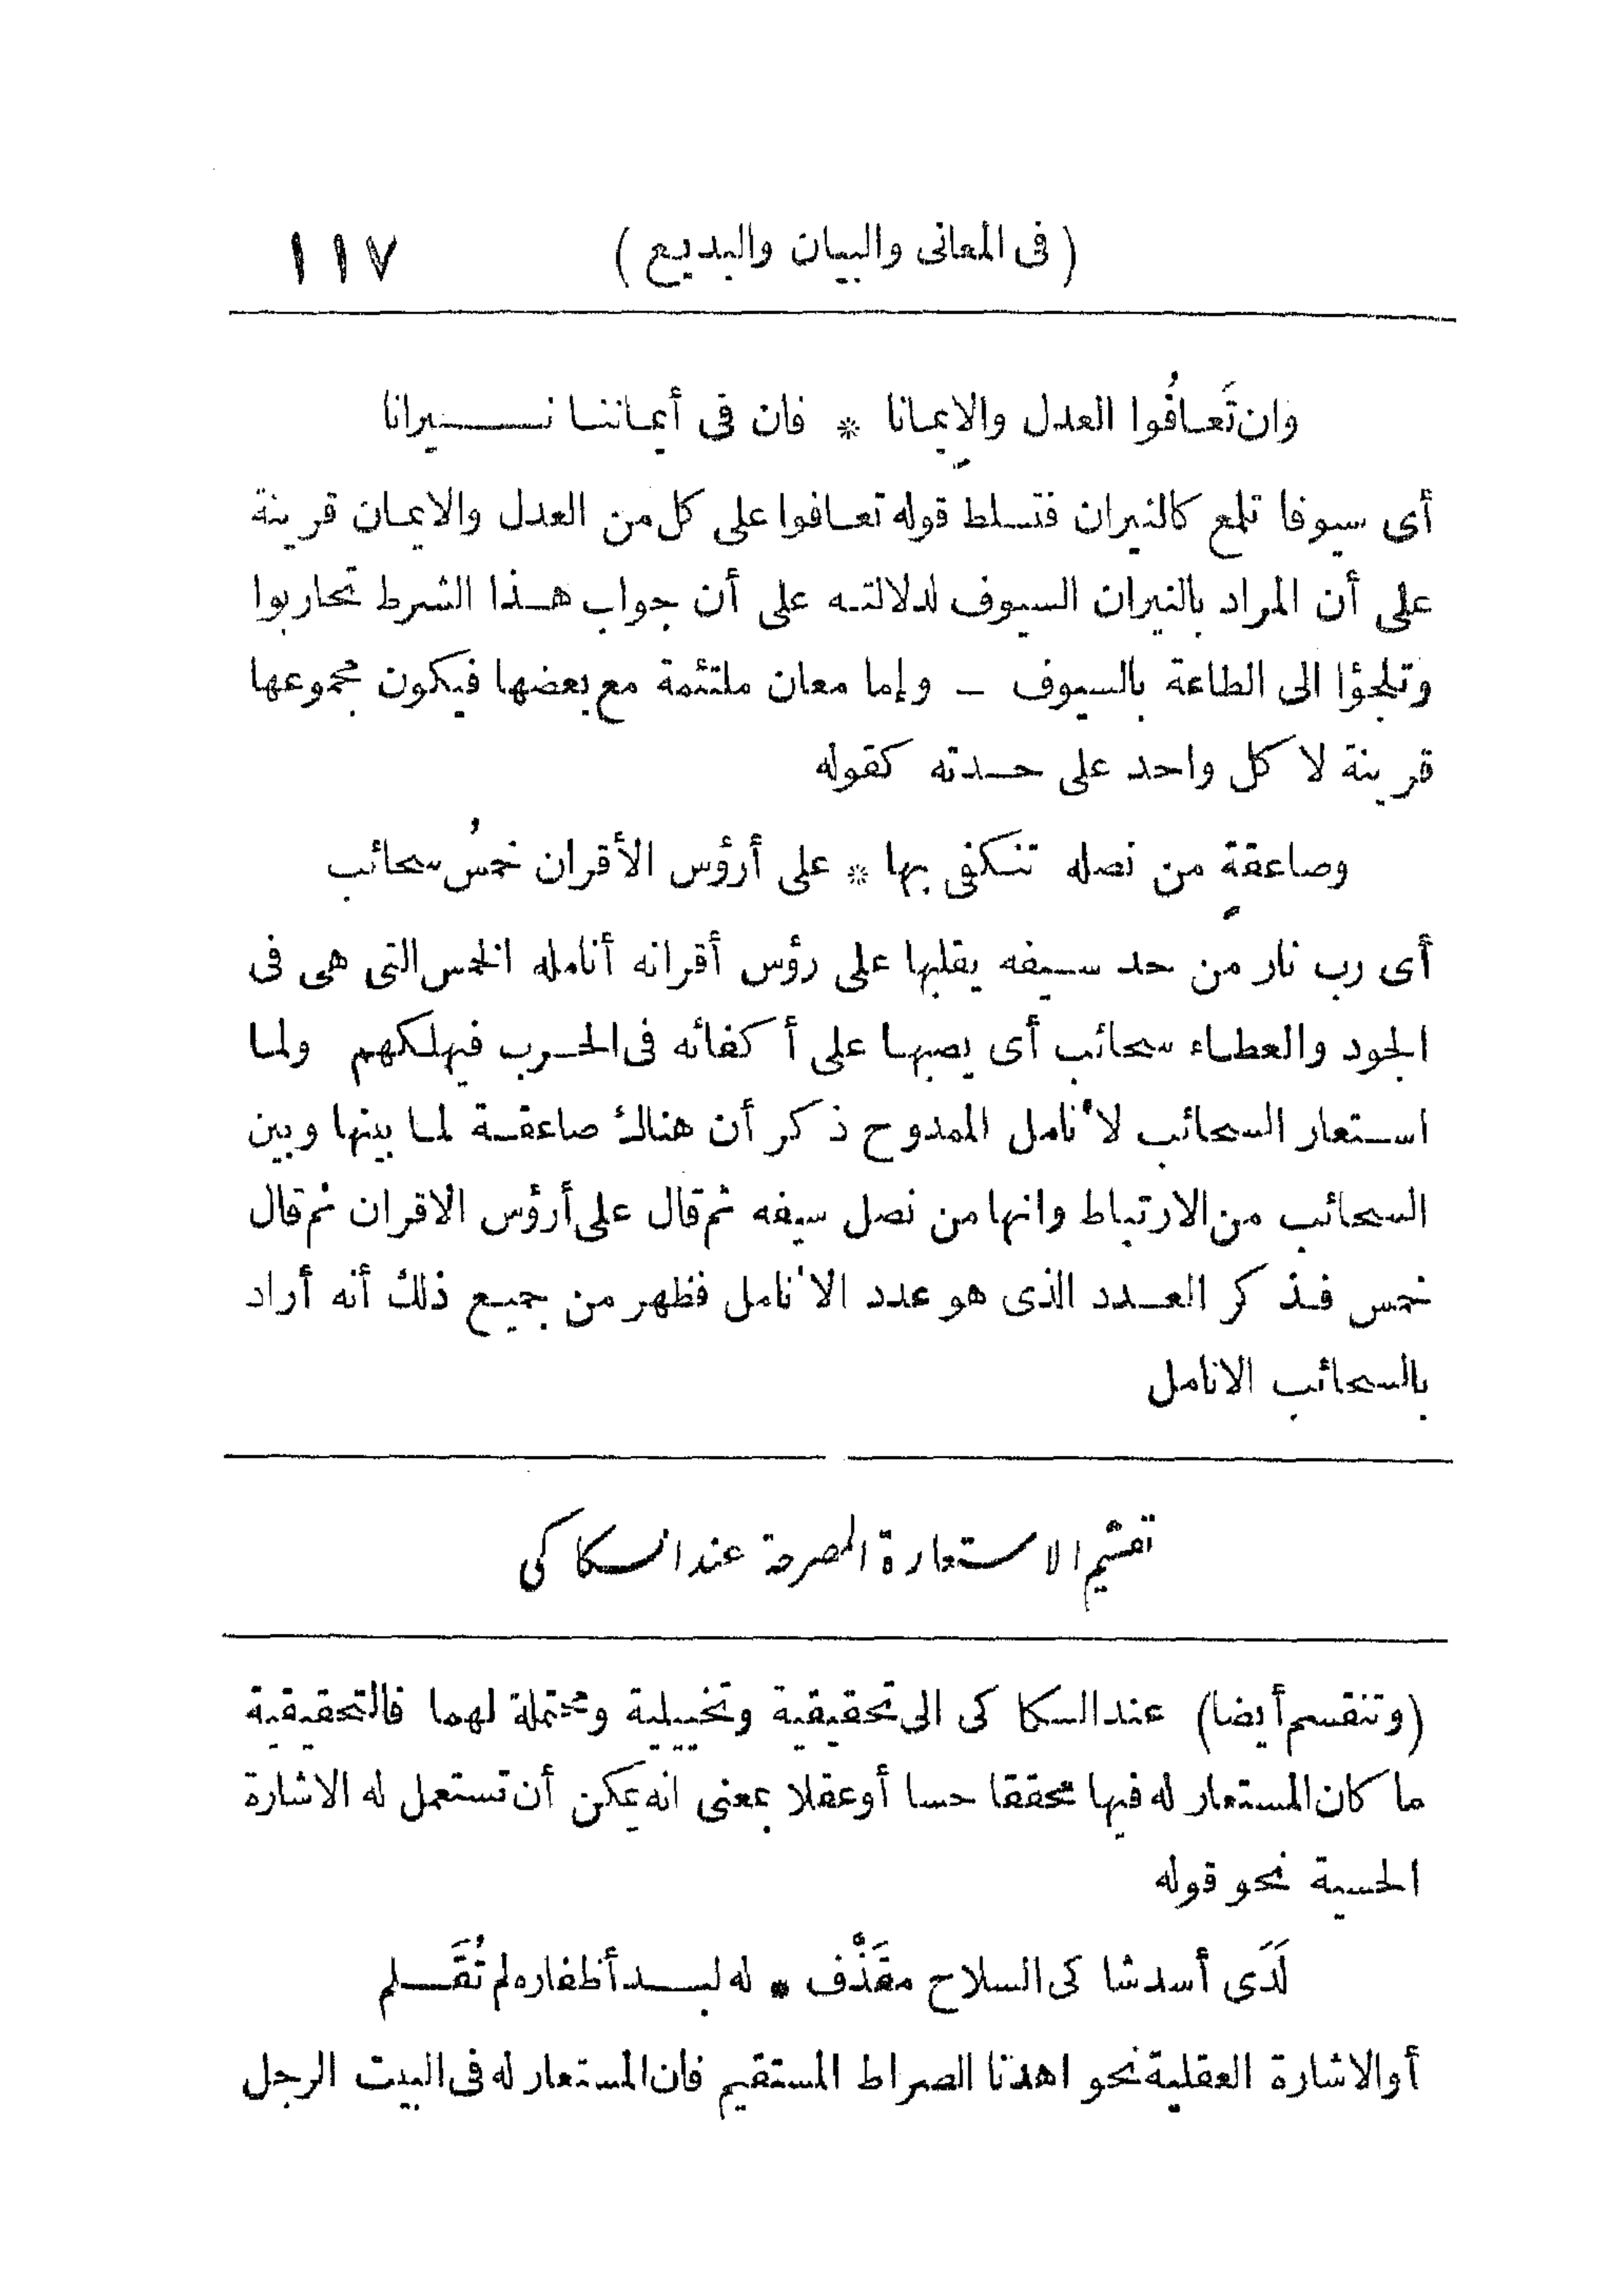 ( فى المعانى والبيان والبديع ) ١١٧
وان تَعافُوا العدل والإيمانا * فان فى أيماننا نيرانا
أى سيوفا تلمع كالنيران فتسلط قوله تعافوا على كل من العدل والايمان قرينة
على أن المراد بالنيران السيوف لدلالته على أن جواب هذا الشرط تحاربوا
وتلجؤا الى الطاعة بالسيوف ــ وإما معان ملتئمة مع بعضها فيكون مجموعها
قرينة لا كل واحد على حدته كقوله
وصاعقةٍ من نصله تنكفى بها * على أرؤس الأقران خمسُ سحائب
أى رب نار من حد سيفه يقلبها على رؤس أقرانه أنامله الخمس التى هى فى
الجود والعطاء سحائب أى يصبها على أكفائه فى الحرب فيهلكهم ولما
استعار السحائب لأنامل الممدوح ذكر أن هناك صاعقة لما بينها وبين
السحائب من الارتباط وانها من نصل سيفه ثم قال على أرؤس الاقران ثم قال
خمس فذكر العدد الذى هو عدد الأنامل فظهر من جميع ذلك أنه أراد
بالسحائب الانامل
تقسيم الاستعارة المصرحة عند السكاكى
(وتنقسم أيضا) عند السكاكى الى تحقيقية وتخييلية ومحتملة لهما فالتحقيقية
ما كان المستعار له فيها محققا حسا أو عقلا بمعنى انه يمكن أن تستعمل له الاشارة
الحسية نحو قوله
لَدَى أسد شاكى السلاح مقَذَّف * له لبد أظفاره لم تُقَلم
أو الاشارة العقلية نحو اهدنا الصراط المستقيم فان المستعار له فى البيت الرجل